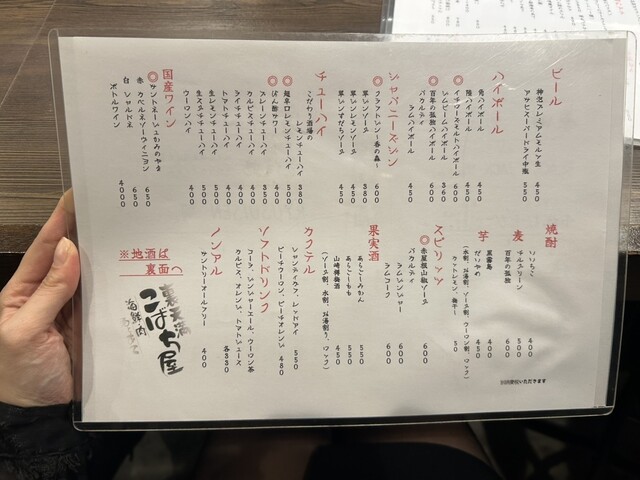 ビール
神泡プレミアムモルツ生 450
アサヒスーパードライ中瓶 550
ハイボール
角ハイボール 450
陸ハイボール 450
◎イチローズモルトハイボール 600
ジムビームハイボール 360
◎百年の孤独ハイボール 600
バカルディ
ラムハイボール 450
ジャパニーズジン
◎クラフトジン 〜香の森〜 600
翠ジンソーダ 380
翠ジンレモンソーダ 450
翠ジンすだちソーダ 450
チューハイ
こだわり酒場の
レモンチューハイ 380
◎超辛口レモンチューハイ 500
◎ばん酪サワー 400
プレーンチューハイ 350
カルピスチューハイ 400
ライチチューハイ 400
トマトチューハイ 400
生レモンチューハイ 500
生スダチチューハイ 500
ウーロンハイ 400
国産ワイン
◎サントネージュかみのやま
赤 カベルネソーヴィニヨン 650
白 シャルドネ 650
ボトルワイン 4000
焼酎
いいちこ 400
麦
チルグリーン 500
百年の孤独 600
芋
黒霧島 400
だいやめ 450
(水割、お湯割、ソーダ割、ウーロン割、ロック)
カットレモン、梅干〜 50
スピリッツ
◎赤屋根山椒ソーダ 600
バカルディ
ラムジンジャー 600
ラムコーク 600
果実酒
あらごしみかん 550
あらごしもも 550
山崎蒸留梅酒 450
(ソーダ割、水割、お湯割り、ロック)
カクテル
シャンディガフ、レッドアイ 550
ピーチウーロン、ピーチオレンジ 480
ソフトドリンク
コーラ、ジンジャーエール、ウーロン茶
カルピス、オレンジ、トマトジュース
各330
ノンアル
サントリーオールフリー 400
※地酒は
裏面へ
裏天満
こばち屋
海鮮肉